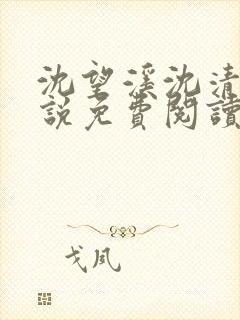 沈望溪沈清
說免費閱讀
戈夙